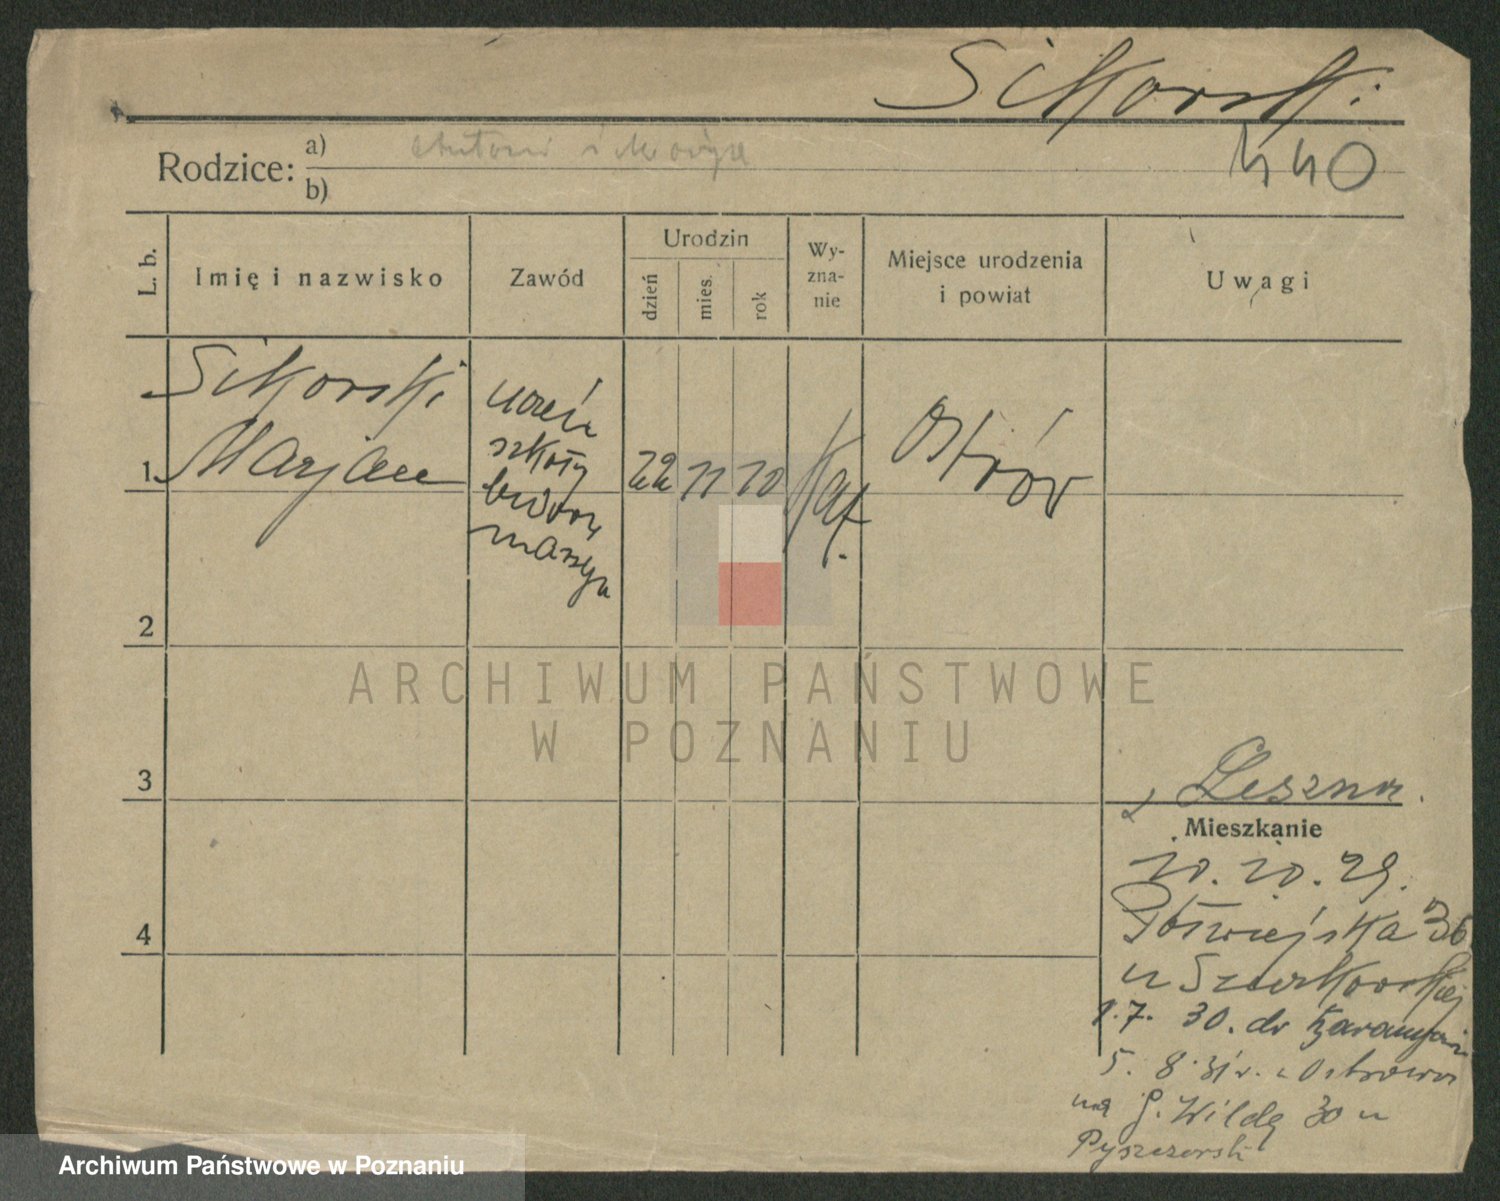 Sikorski
Rodzice: a) Antoni i Marja
b)
440
L. b.
Imię i nazwisko
Zawód
Urodzin
dzień
mies.
rok
Wy-
zna-
nie
Miejsce urodzenia
i powiat
Uwagi
Sikorski
1. Marjan
uczeń
szkoły
budowy
maszyn
22 11 10
Kat.
Ostrów
2
3
4
z Leszna.
Mieszkanie
10.10.29.
Półwiejska 36
u
1.7.30. do
5.8.31 r. z Ostrowa
na G. Wildę 30 u
Pyszczorski
ARCHIWUM PAŃSTWOWE
W POZNANIU
Archiwum Państwowe w Poznaniu